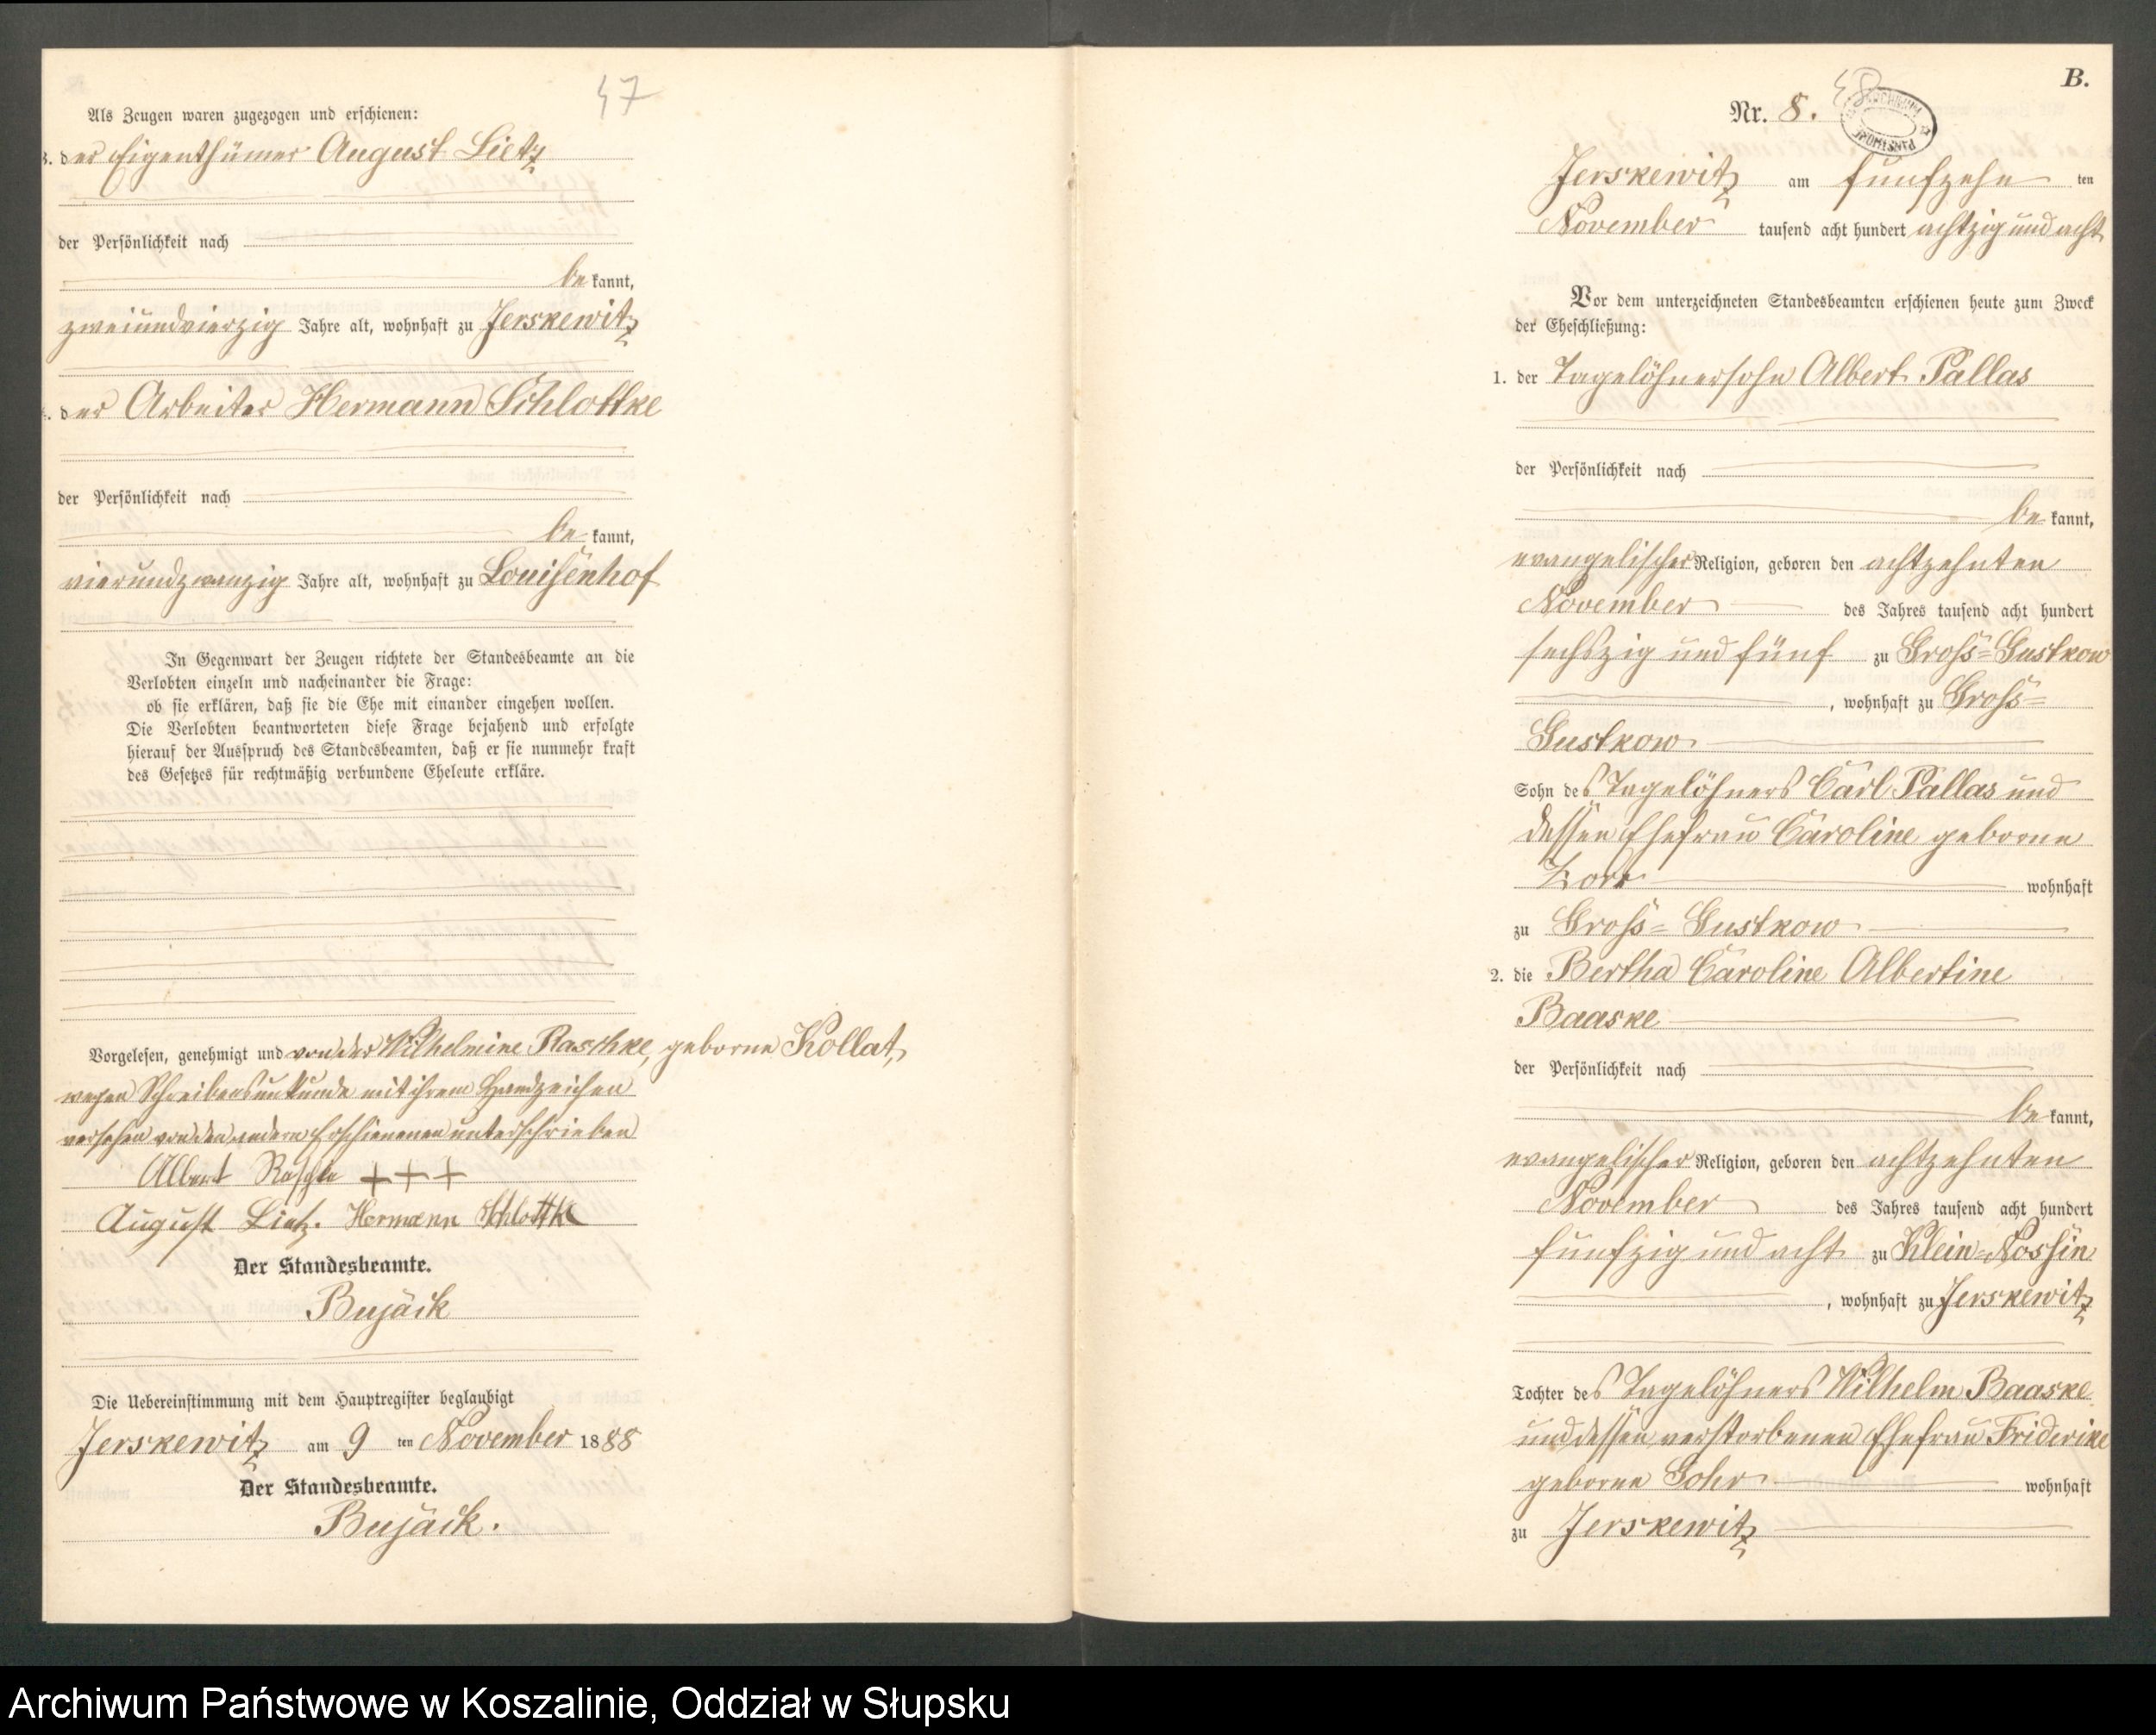 47
Als Zeugen waren zugezogen und erschienen:
3. der Eigenthümer August Lietz
der Persönlichkeit nach
be kannt,
zweiundvierzig Jahre alt, wohnhaft zu Jerskewitz
4. der Arbeiter Hermann Schlottke
der Persönlichkeit nach
be kannt,
vierundzwanzig Jahre alt, wohnhaft zu Louisenhof
In Gegenwart der Zeugen richtete der Standesbeamte an die
Verlobten einzeln und nacheinander die Frage:
ob sie erklären, daß sie die Ehe mit einander eingehen wollen.
Die Verlobten beantworteten diese Frage bejahend und erfolgte
hierauf der Ausspruch des Standesbeamten, daß er sie nunmehr kraft
des Gesetzes für rechtmäßig verbundene Eheleute erkläre.
Vorgelesen, genehmigt und von der Wilhelmine Raschke, geborne Kollat,
wegen Schreibensunkunde mit ihrem Handzeichen
versehen von den andern Erschienenen unterschrieben
Albert Raschke +++
August Lietz. Hermann Schlottke
Der Standesbeamte.
Bujäck
Die Uebereinstimmung mit dem Hauptregister beglaubigt
Jerskewitz am 9 ten November 1888
Der Standesbeamte.
Bujäck.
B.
Nr. 8. 48
Jerskewitz am fünfzehn ten
November tausend acht hundert achtzig und acht
Vor dem unterzeichneten Standesbeamten erschienen heute zum Zweck
der Eheschließung:
1. der Tagelöhnersohn Albert Pallas
der Persönlichkeit nach
be kannt,
evangelischer Religion, geboren den achtzehnten
November des Jahres tausend acht hundert
sechszig und fünf zu Groß=Gustkow
, wohnhaft zu Groß=
Gustkow
Sohn des Tagelöhners Carl Pallas und
dessen Ehefrau Caroline geborne
wohnhaft
zu Groß=Gustkow
2. die Bertha Caroline Albertine
Baaske
der Persönlichkeit nach
be kannt,
evangelischer Religion, geboren den achtzehnten
November des Jahres tausend acht hundert
fünfzig und acht zu Klein=Nossin
, wohnhaft zu Jerskewitz
Tochter des Tagelöhners Wilhelm Baaske
und dessen verstorbenen Ehefrau Friderike
geborne Gohr wohnhaft
zu Jerskewitz
Archiwum Państwowe w Koszalinie, Oddział w Słupsku